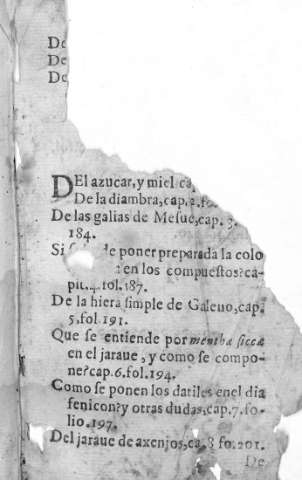 De
De
De
DEl azucar, y miel ca
De la diambra, cap. 2. fo.
De las galias de Mesue, cap. 3.
184.
Si de poner preparada la colo
en los compuestos? ca-
pit. 4. fol. 187.
De la hiera simple de Galeno, cap.
5. fol. 191.
Que se entiende por mentha sicca
en el jaraue, y como se compo-
ne? cap. 6. fol. 194.
Como se ponen los datiles enel dia
fenicon? y otras dudas, cap. 7. fo-
lio. 197.
Del jaraue de axenjos, ca. 8 fo. 201.
De